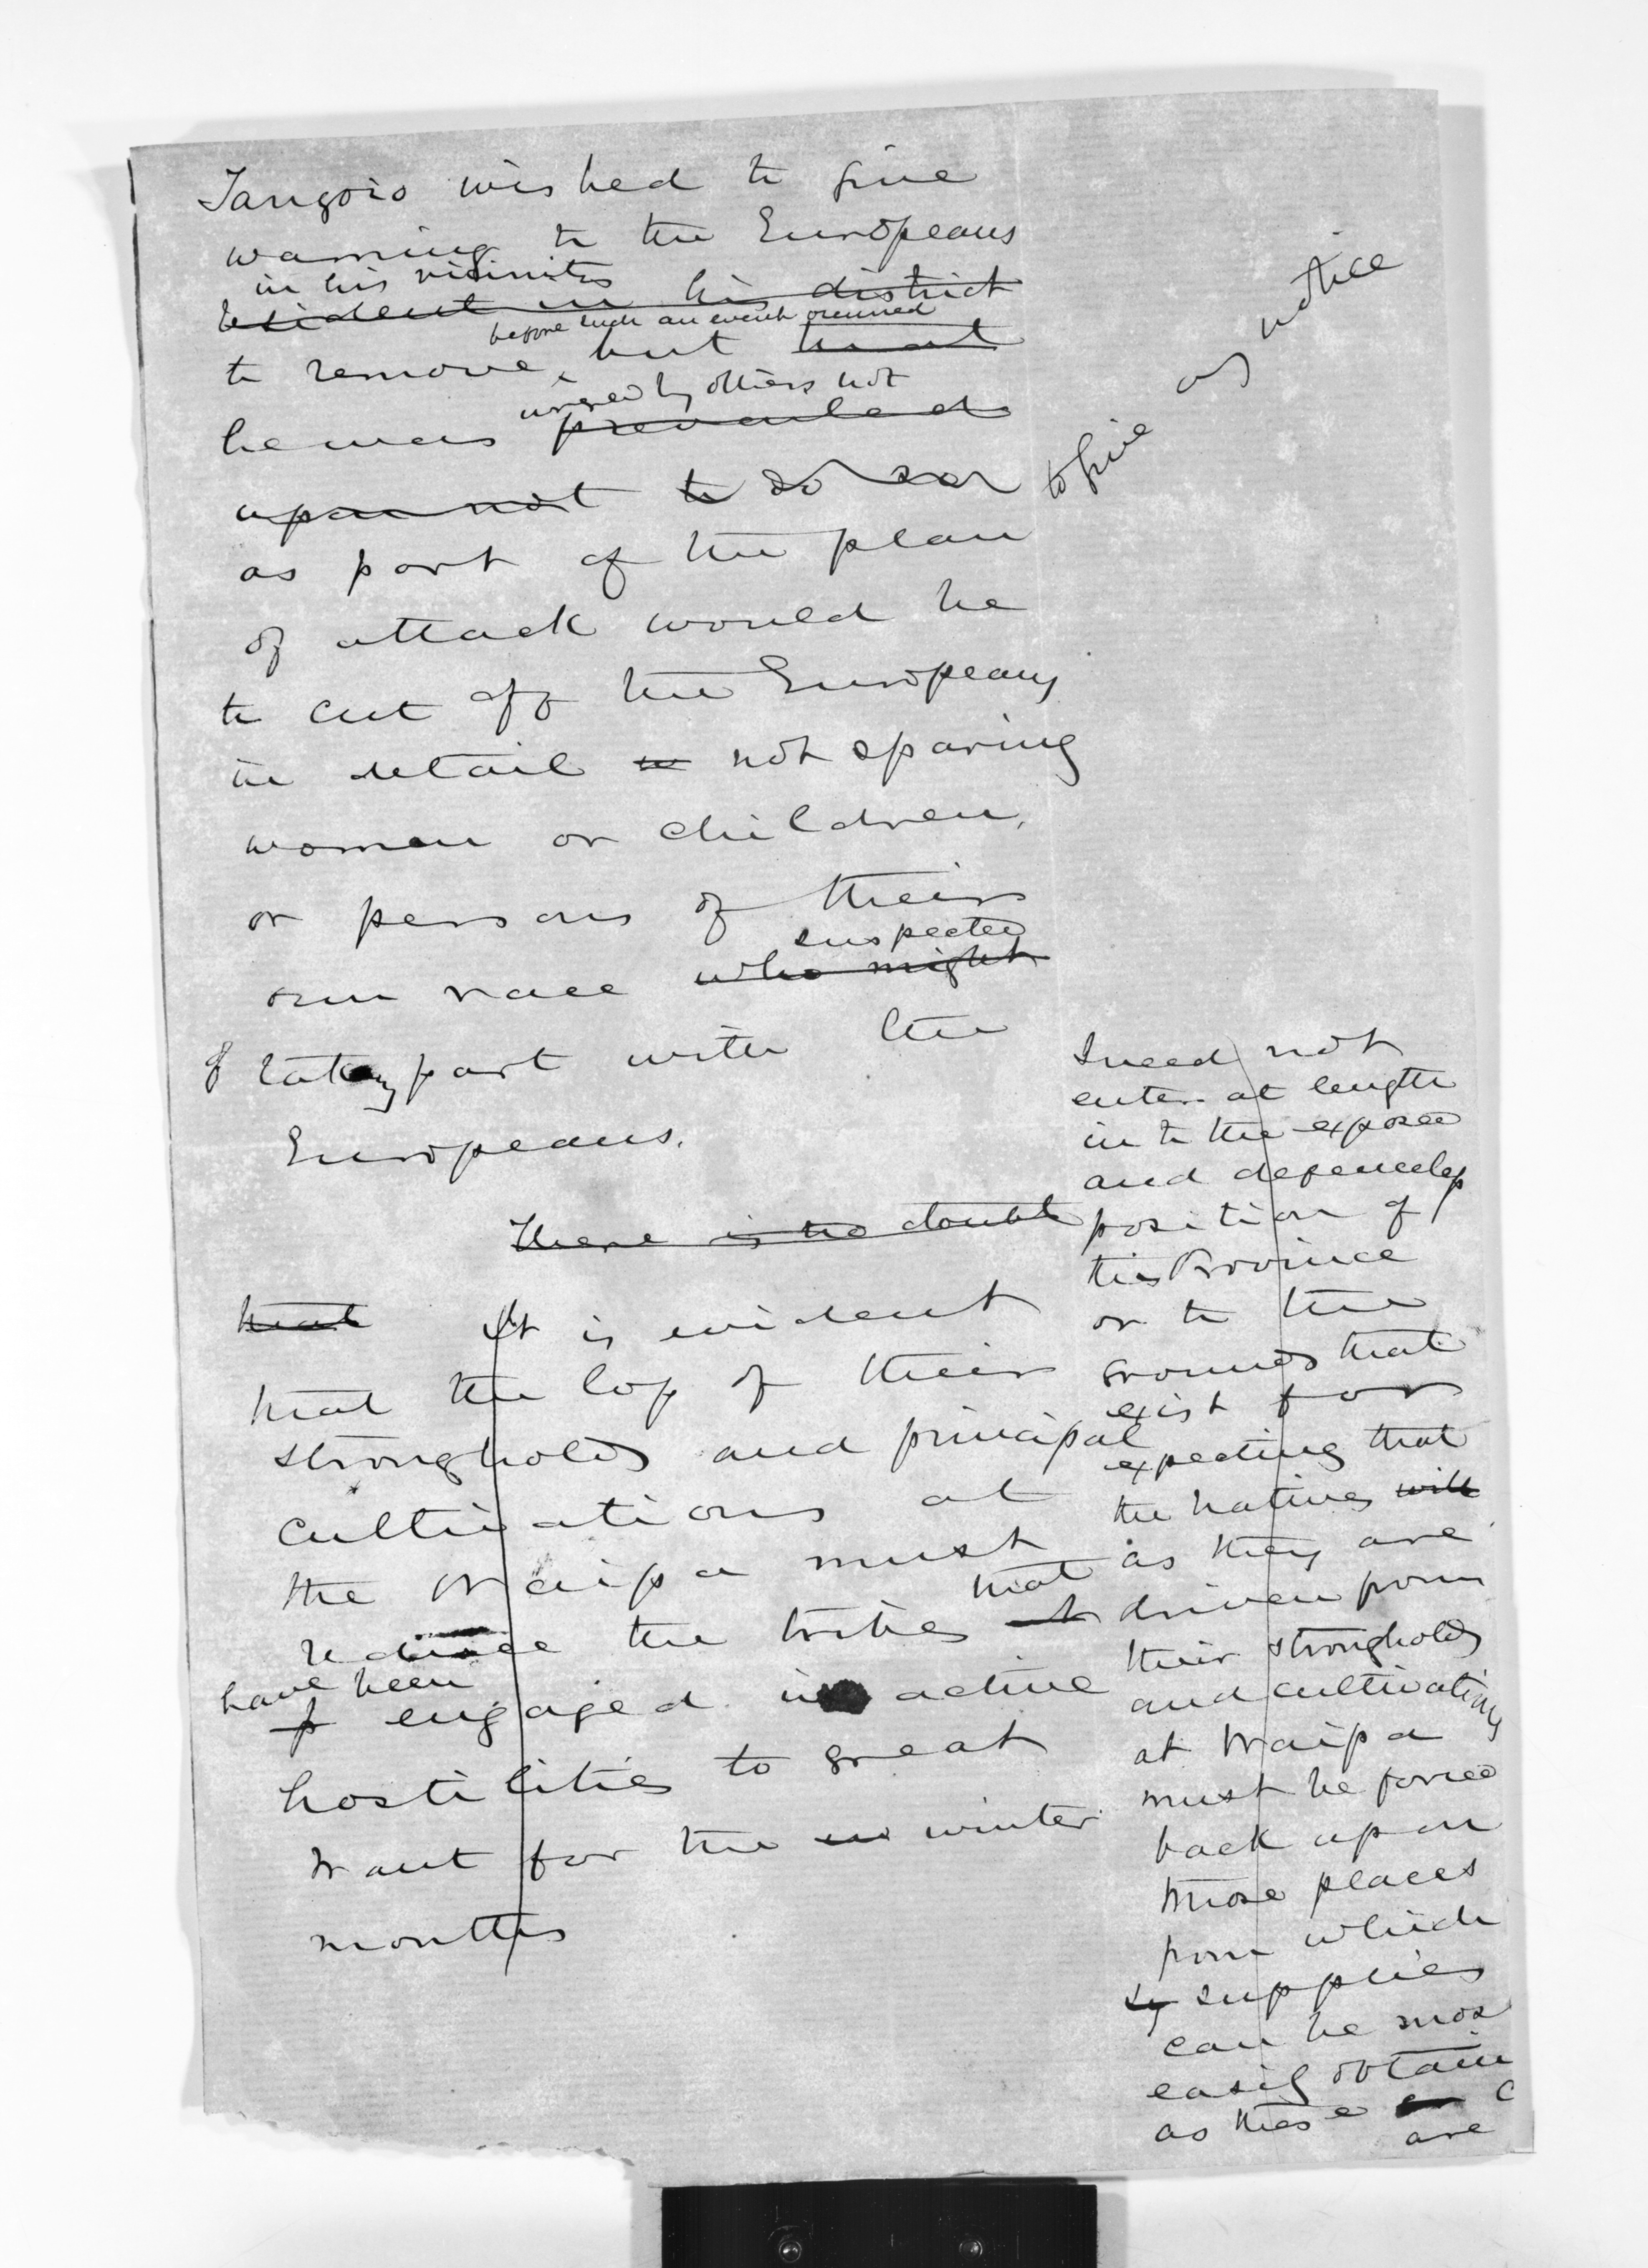 Tangoio wished to give
warning to the Europeans
in his vicinity
resident in his district
before such an event occurred
to remove, but that
urged by others not
he was prevailed
upon not to do so
to give any notice
as part of the plan
of attack would be
to cut off the Europeans
in detail not sparing
women or children,
or persons of their
suspected
own race who might
of taking part with the
Europeans.
There is no doubt
that It is evident
that the loss of their
strongholds and principal
cultivations at
the Waipa must
reduce the tribes that
have been
engaged in active
hostilities to great
want for the winter
months
I need not
enter at length
into the exposed
and defenceless
position of
this Province
or to the
grounds that
exist for
expecting that
the natives will
as they are
driven from
their strongholds
and cultivations
at Waipa
must be forced
back upon
those places
from which
supplies
can be mos
easily obtain
as these
are